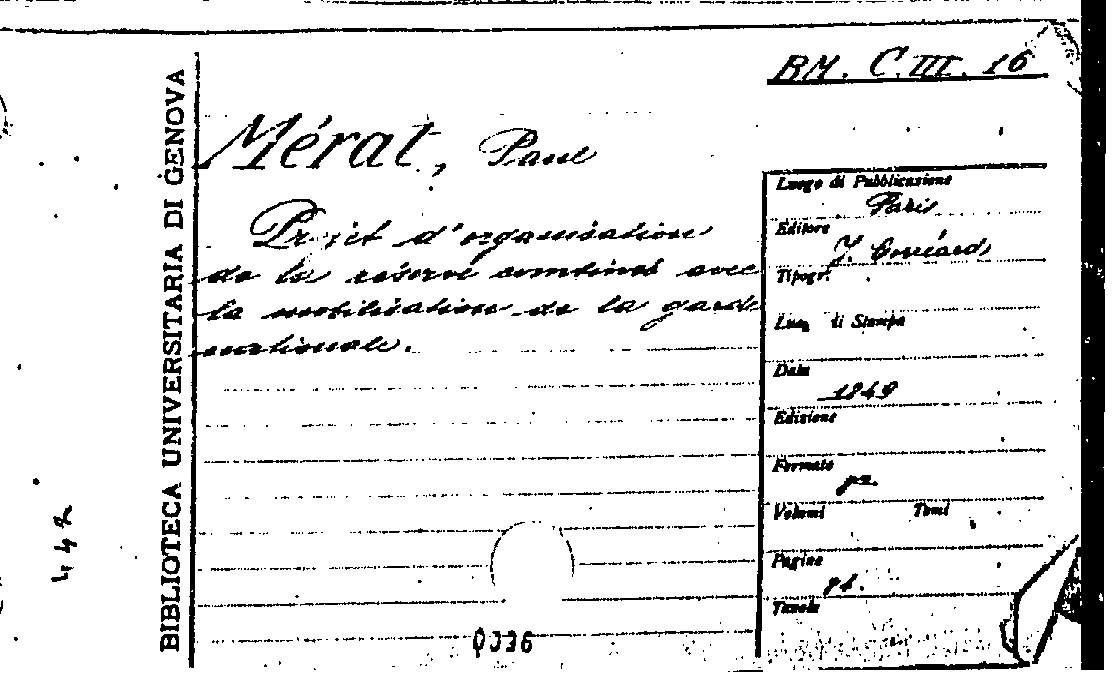 BM. C.III. 16
BIBLIOTECA UNIVERSITARIA DI GENOVA
Mérat, Paul
Projet d'organisation
de la réserve combinée avec
la mobilisation de la garde
nationale.
Luogo di Pubblicazione
Paris
Editore
J.
Tipogr.
Luog. di Stampa
Data
1849
Edizione
Formato
Volumi Tomi
Pagine
Tavole
442